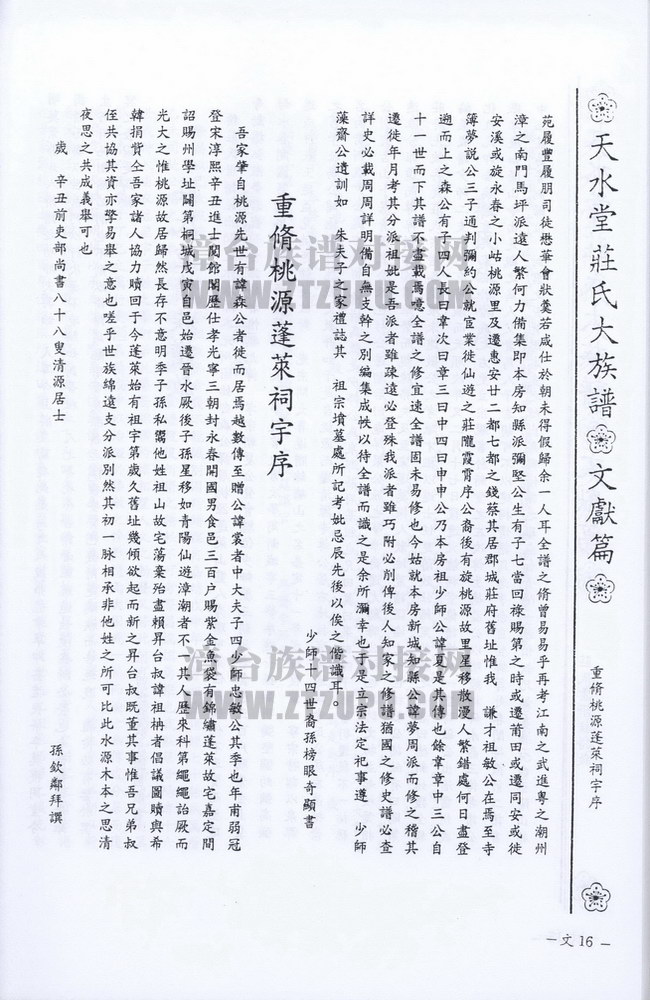 天水堂莊氏大族譜 文獻篇
重脩桃源蓬萊祠宇序
苑履豐履朋司徒懋華會狀羹若咸仕於朝未得假歸余一人耳全譜之脩曾易易乎再考江南之武進粵之潮州
漳之南門馬坪派遠人繁何力備集即本房知縣派彌堅公生有子七當回祿賜第之時或遷莆田或遷同安或徙
安溪或旋永春之小岵桃源里及遷惠安廿二都七都之錢蔡其居郡城莊府舊址惟我 謙才祖敏公在焉至寺
簿夢說公三子通判彌約公就宦業徙仙遊之莊隴霞霄序公裔後有旋桃源故里星移散漫人繁錯處何日盡登
遡而上之森公有子四人長曰韋次曰章三曰中四曰申申公乃本房祖少師公諱夏是其傳也餘韋章中三公自
十一世而下其譜不盡載焉噫全譜之修宜速全譜固未易修也今姑就本房新城知縣公諱夢周派而修之稽其
遷徙年月考其分派祖妣是吾派者雖疎遠必登殊我派者雖巧附必削俾後人知家之修譜猶國之修史譜必查
詳史必載周周詳明備自無支幹之別編集成帙以待全譜而識之是余所瀰幸也于是立宗法定祀事遵 少師
藻齋公遺訓如 朱夫子之家禮誌其 祖宗墳墓處所記考妣忌辰先後以俟之偕識耳。
少師十四世裔孫榜眼奇顯書
重脩桃源蓬萊祠宇序
吾家肇自桃源先世有諱森公者徙而居焉越數傳至贈公諱裳者中大夫子四少師忠敏公其季也年甫弱冠
登宋淳熙辛丑進士閱館閣歷仕孝光寧三朝封永春開國男食邑三百户賜紫金魚袋有錦繡蓬萊故宅嘉定間
詔賜州學址闢第桐城戊寅自邑始遷晉水厥後子孫星移如青陽仙遊漳潮者不一其人歷來科第繩繩詒厥而
光大之惟桃源故居歸然長存不意明季子孫私鬻他姓祖山故宅蕩棄殆盡賴昇台叔諱祖枏者倡議圖贖與希
韓捐貲仝吾家諸人協力贖回于今蓬萊始有祖宇第歲久舊址幾傾欲起而新之昇台叔既董其事惟吾兄弟叔
侄共協其資亦擎易舉之意也嗟乎世族綿遠支分派別然其初一脈相承非他姓之所可比此水源木本之思清
夜思之共成義舉可也
歲 辛丑前吏部尚書八十八叟清源居士
孫欽鄰拜譔
－文16－
漳台族谱对接网
WWW.ZTZUPU.COM
漳台族谱对接网
WWW.ZTZUPU.COM